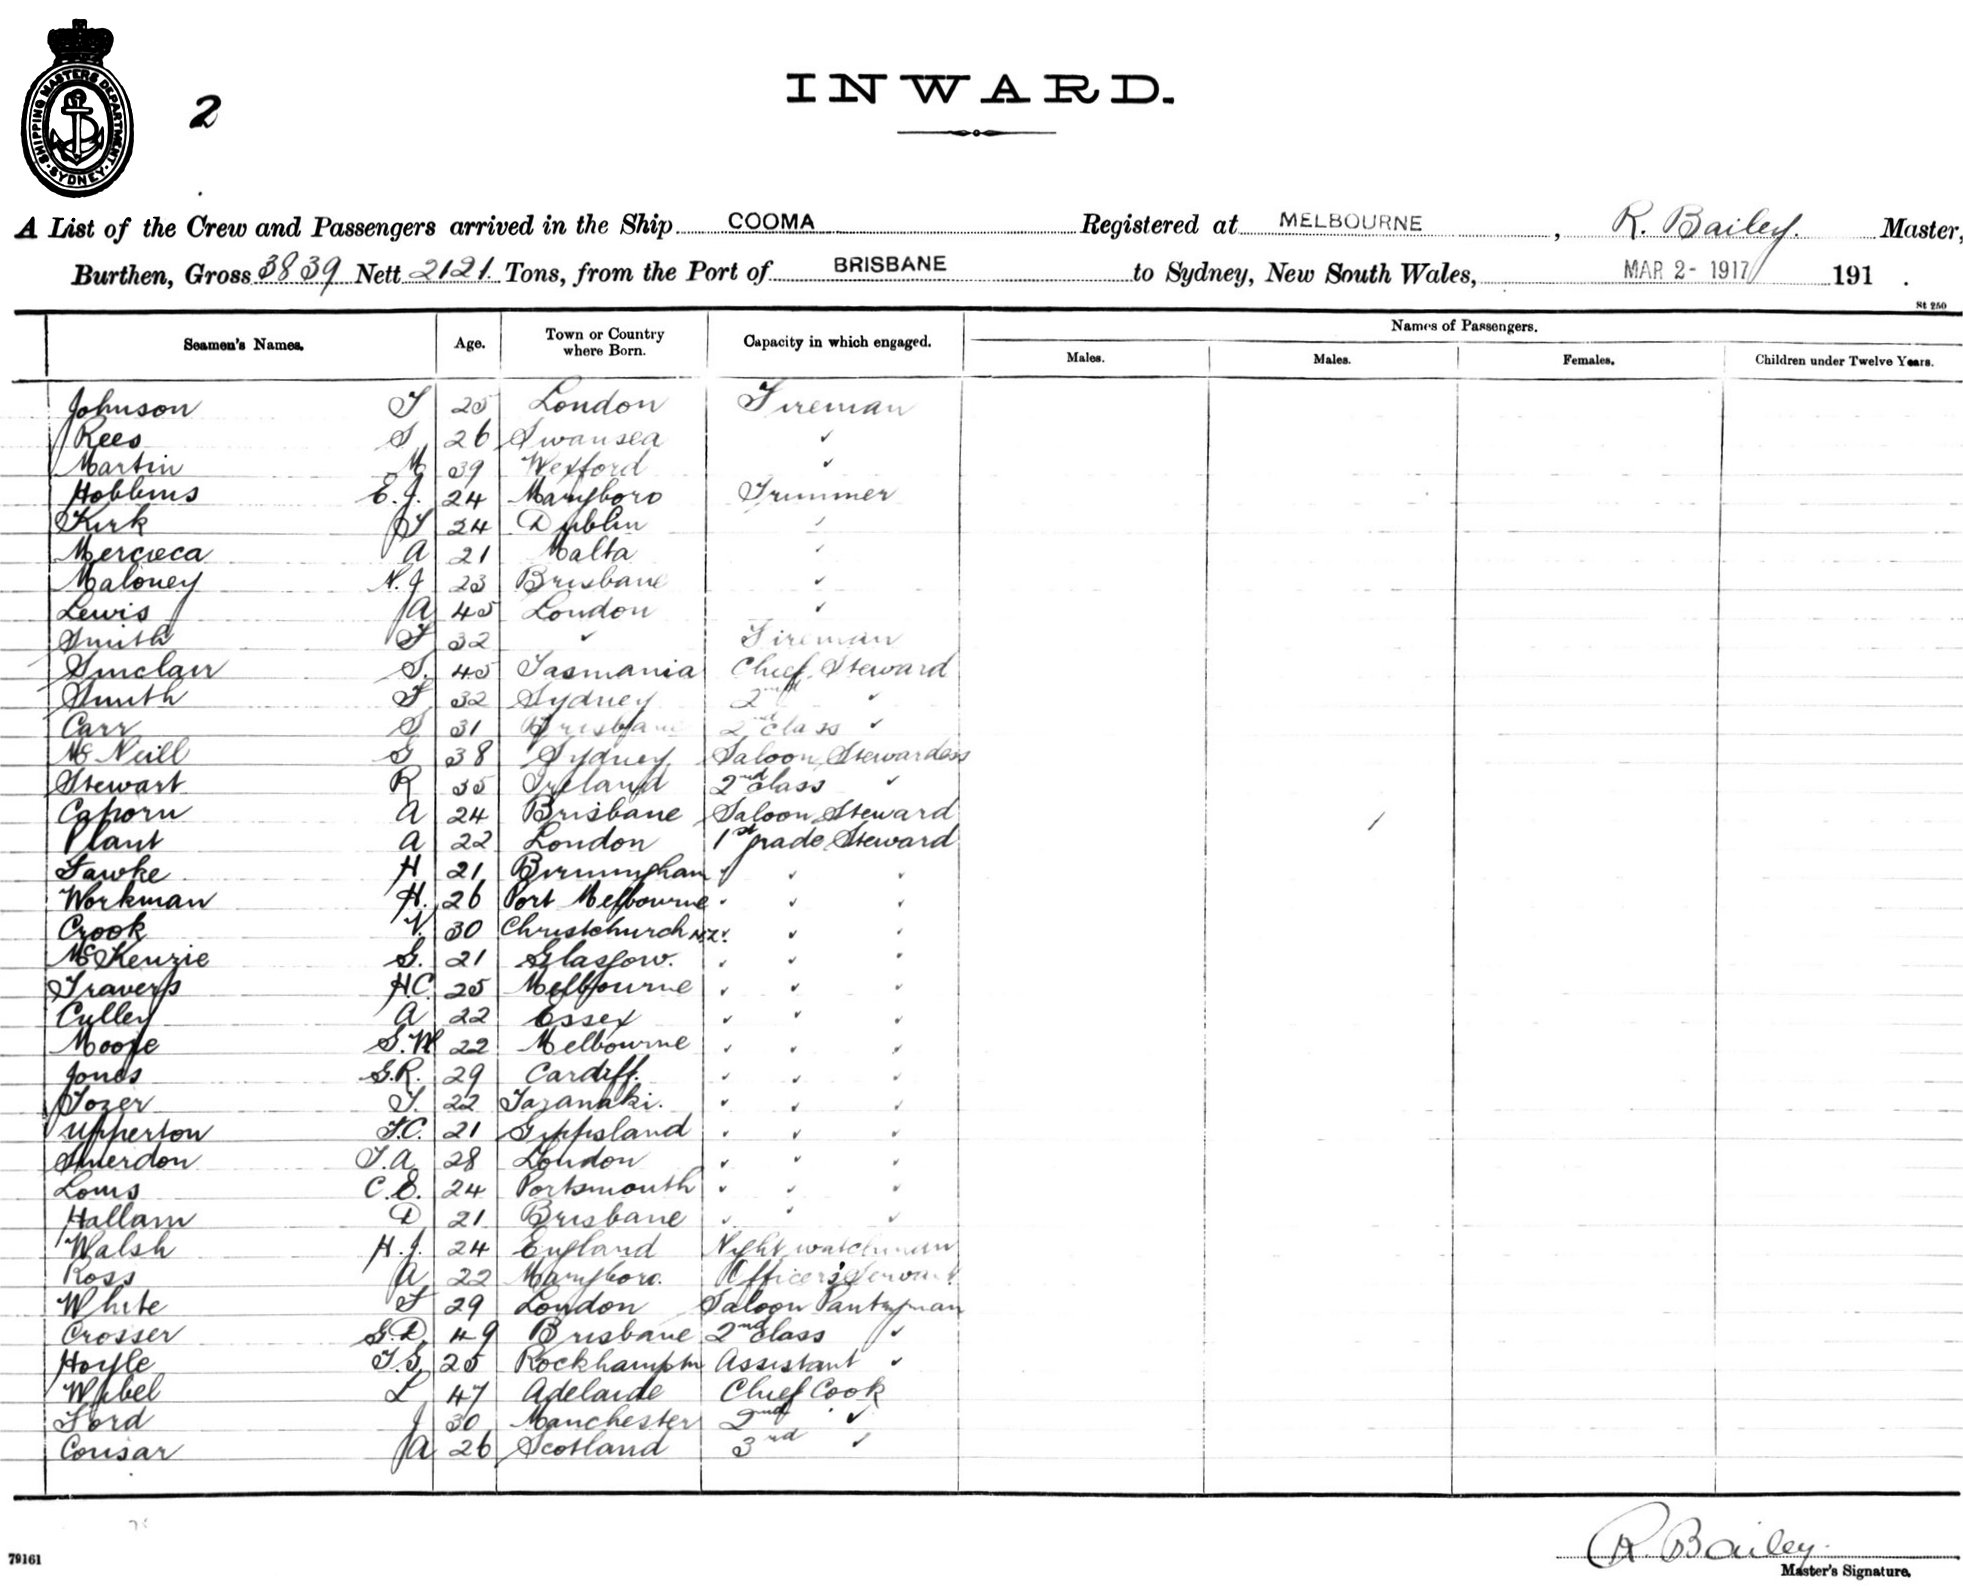 SHIPPING MASTERS DEPARTMENT · SYDNEY ·
2
INWARD.
A List of the Crew and Passengers arrived in the Ship COOMA Registered at MELBOURNE, R. Bailey. Master,
Burthen, Gross 3839 Nett 2121 Tons, from the Port of BRISBANE to Sydney, New South Wales, MAR 2- 1917 191 .
St 250
Seamen's Names. Age. Town or Country where Born. Capacity in which engaged. Names of Passengers.
Males. Males. Females. Children under Twelve Years.
Johnson T 25 London Fireman
Rees S 26 Swansea ✓
Martin M 39 Wexford ✓
Hobbins E.J. 24 Maryboro Trimmer
Kirk T 24 Dublin ✓
Mercieca A 21 Malta ✓
Maloney N.J 23 Brisbane ✓
Lewis A 45 London ✓
Smith T 32 ✓ Fireman
Sinclair S. 45 Tasmania Chief Steward
Smith F 32 Sydney 2nd ✓
Carr S 31 Brisbane 2nd class ✓
McNeill G 38 Sydney Saloon Stewardess
Stewart R 35 Ireland 2nd class ✓
Caporn A 24 Brisbane Saloon Steward
Plant A 22 London 1st grade Steward
Fawke H 21 Birmingham ✓ ✓ ✓
Workman H. 26 Port Melbourne ✓ ✓ ✓
Crook V. 30 Christchurch N.Z. ✓ ✓ ✓
McKenzie G. 21 Glasgow. ✓ ✓ ✓
Travers H.C. 25 Melbourne ✓ ✓ ✓
Culley A 22 Essex ✓ ✓ ✓
Moore S.W 22 Melbourne ✓ ✓ ✓
Jones G.R. 29 Cardiff. ✓ ✓ ✓
Tozer T. 22 Taranaki. ✓ ✓ ✓
Upperton F.C. 21 Gippsland ✓ ✓ ✓
Smerdon T.A. 28 London ✓ ✓ ✓
Louis C.E. 24 Portsmouth ✓ ✓ ✓
Hallam D 21 Brisbane ✓ ✓ ✓
Walsh H.J. 24 England Night watchman
Ross A 22 Maryboro. Officer's Servant
White F 29 London Saloon Pantryman
Crosser G.D. 49 Brisbane 2nd class ✓
Hoyle T.G. 25 Rockhampton Assistant ✓
Wibel L 47 Adelaide Chief Cook
Ford J 30 Manchester 2nd ✓
Cousar A 26 Scotland 3rd ✓
79161
R. Bailey.
Master's Signature.